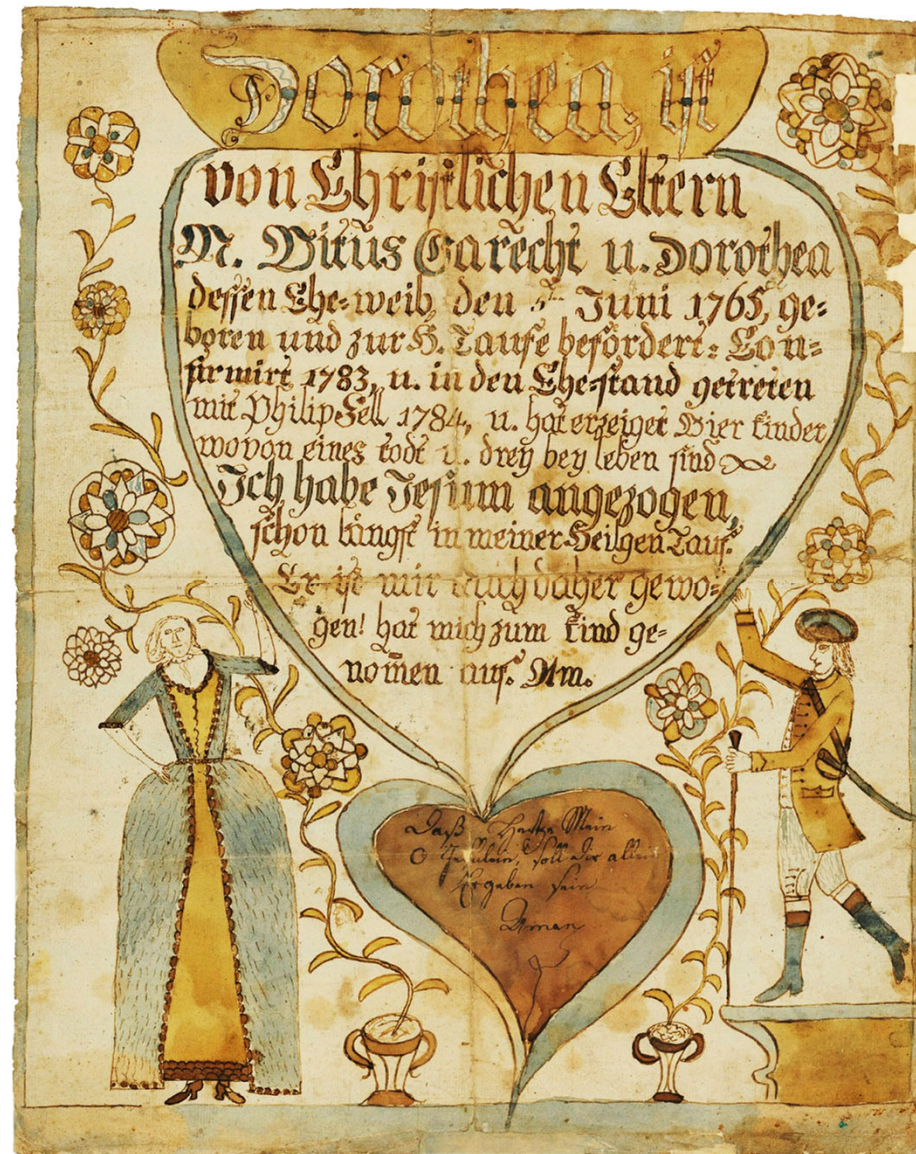 Dorothea, ist
von Christlichen Eltern
M. Vitus Garecht u. Dorothea
dessen Ehe-weib, den 5ten Juni 1765, ge=
boren und zur H. Taufe befördert: Con=
firmirt 1783, u. in den Ehe-stand getreten
mit Philip Fell 1784, u. hat erzeiget Vier kinder
wovon eines todt u. dreÿ beÿ leben sind
Ich habe Jesum angezogen,
schon längst in meiner Heilgen Tauf.
Er ist mir auch daher gewo=
gen! hat mich zum kind ge=
nom̄en auf. Am.
Daß Hertze Mein
O Jesulein, soll dir allein
Ergeben sein
Amen